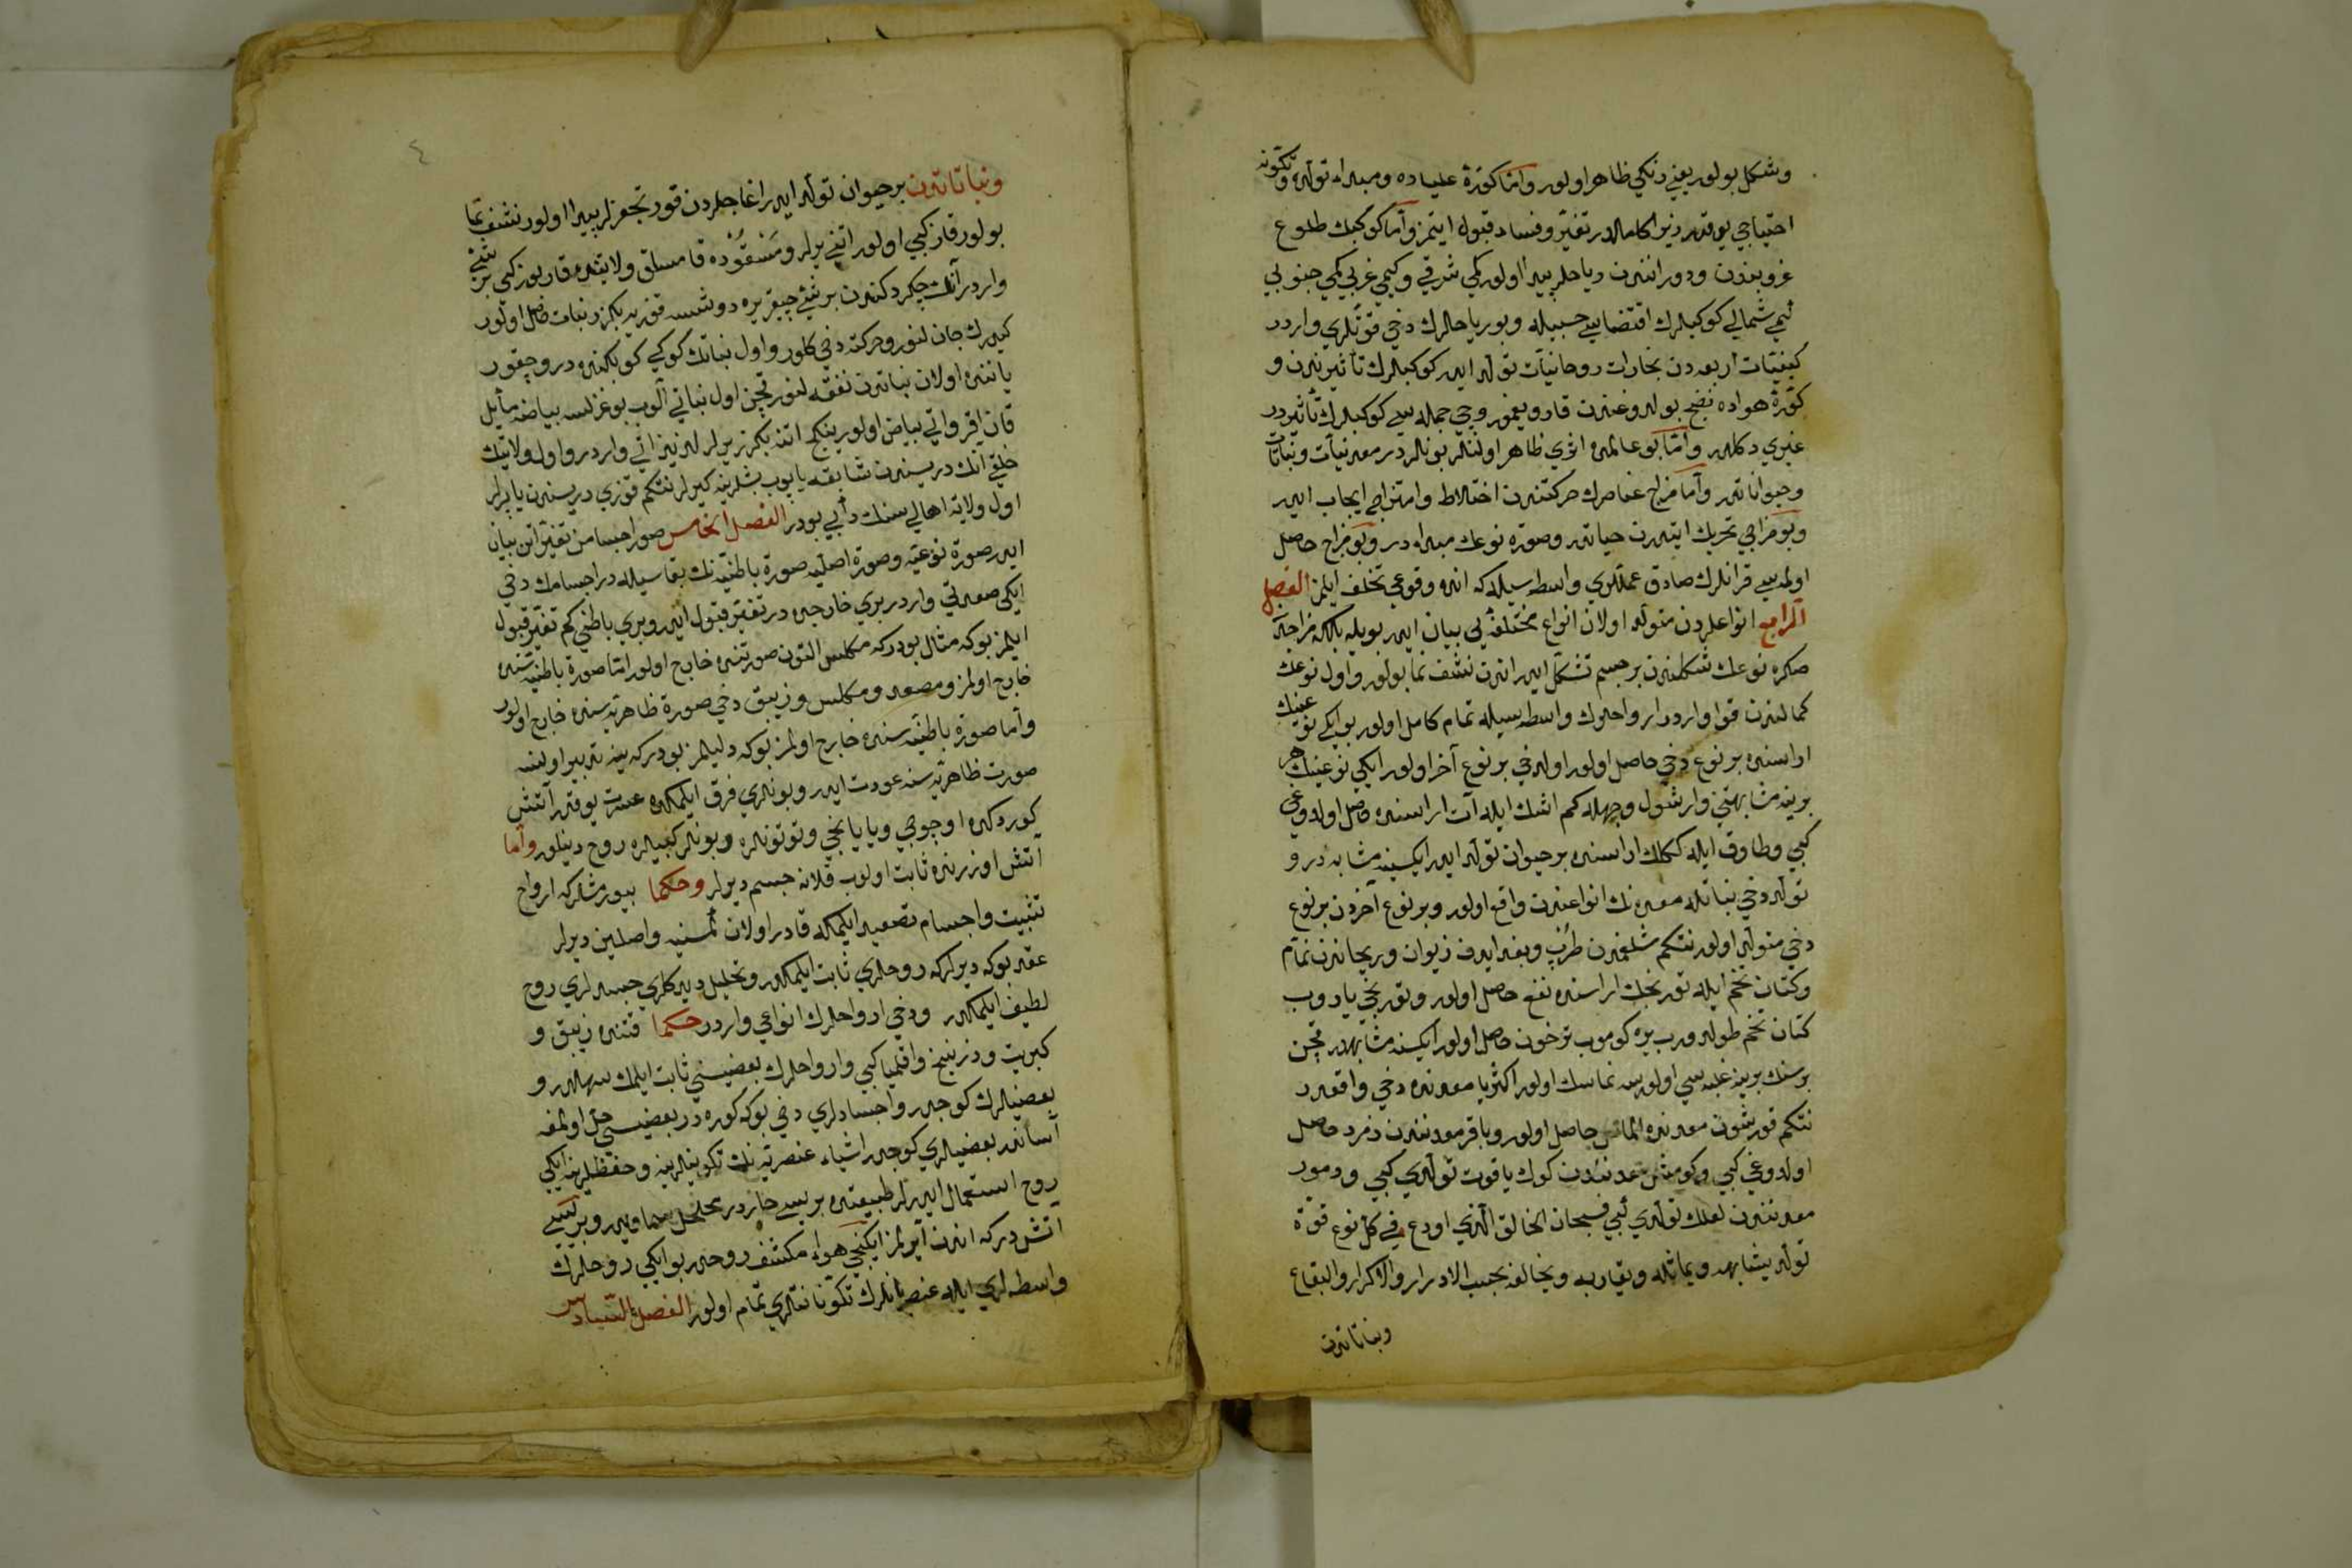 وشكل بولور يعني رنكي ظاهر اولور وامّا كوّرة علياده ومبداء تولّده وتكوّنه
احتياجي يوقدر زيرا كاملدر تغيّر وفساد قبول ايتمز وامّا كوكبك طلوع
غروبندن ودوراننن رياحلر پيدا اولور كمي شرقي وكيمي غربي كمي جنوبي
كمي شمالي كوكبلرك اقتضاسي حسبيله وبورياحلرك دخي قوّتلري واردر
كيفيّات اربعه دن بخارات روحانيّات تولّد ايدر كوكبلرك تأثيرندن و
كوّرة هواده نضج بولدوغندن قار ويغمور وچي جمله سي كوكبلرك تأثيردر
غيري دكلدر وامّا بو عالمده اثري ظاهر اولنلر بونلردر معدنيّات ونباتات
وحيواناتدر وامّا مزاج عناصرك حركتندن اختلاط وامتزاجي ايجاب ايدر
وبو مزاجي تحريك ايتدرن حياتدر وصورة نوعك مبداء در وبو مزاج حاصل
اولمه سي قرانلرك صادق عمللري واسطه سيله كه انده وقوعي تخلف ايلمز الفصل
الرابع انواعلردن متولّد اولان انواع مختلفه يي بيان ايدر بويله بلكه مزاجدن
صكره نوعك شكلندن بر جسم تشكّل ايدر اندن نشف نما بولور واول نوعك
كمالندن قوا وارددر ارواحلرك واسطه سيله تمام كامل اولور بو ايكي نوعينك
اراسنده بر نوع دخي حاصل اولور اولدخي بر نوع آخر اولور ايكي نوعينك هر
برينه مشابهتي وار شول وجهله كم اشك ايله آت اراسنده حاصل اولدوغي
كبي وطاوق ايله ككلك اراسنده بر حيوان تولّد ايدر ايكيسنه مشابه در و
تولّد دخي نباتله معدنك انواعندن واقع اولور وبر نوع آخردن بر نوع
دخي متولّد اولور نتكم شلغمدن طرب وبغدايدن زيوان وريحاندن نمّام
وكتان تخم ايله تورنجك اراسنده نعنع حاصل اولور وتورنجي ياروب
كتان تخم طولدورب يره كوموب ترخون حاصل اولور ايكيسنه مشابهدر قچن
برسنك برينه غلبه سي اولورسه نماسك اولور اكثريا معدنده دخي واقعدر
نتكم قورشون معدننده الماس حاصل اولور وباقر معدنندن زمرد حاصل
اولدوغي كبي وكومش معدنندن كوك ياقوت تولّدي كبي ودمور
معدنندن لعلك تولّدي كبي فسبحان الخالق الّذي اودع في كلّ نوع قوّة
تولّد يشابهه ويماثله ويقاربه ويخالفه بحسب الادرار والاكرار والبقاع
ونباتاتدن
٤
ونباتاتدن بر حيوان تولّد ايدر اغاجلردن قورتجغزلر پيدا اولور نشف نما
بولور قاز كبي اولور اتني يرلر ومسقوده قامسلق ولايتنده قاربوز كبي بر شئ
واردر آنك چكردكندن بر شئ چيقر يره دوشسه قوزيه بكزر نبات حاصل اولور
كيدرك جان لنور وحركته دخي كلور واول نباتك كوكي كوبكنده در وچيقور
ياننده اولان نباتدن نفقه لنور قچن اول نباتي آلوب بوغزلسه بياضه مائل
قان اقر واتي بياض اولور ينكج اتنه بكزر يرلر لذيذ اتي واردر واول ولايتك
خلقي انك دريسندن شابقه ياپوب باشلرينه كيرلر نتكم قوزي دريسندن ياپرلر
اول ولايه اهاليسنك دأبي بودر الفصل الخامس صور اجسامن تغيّراتن بيان
ايدر صورة نوعيّه وصورة اصليّه صورة باطنيّه نك بقاسيله در اجسامك دخي
ايكي صورتي واردر بري خارجيده در تغيّر قبول ايدر وبري باطني كم تغيّر قبول
ايلمز بوكه مثال بودركه مكلّس التون صورتنده خارج اولور امّا صورة باطنيّه سنده
خارج اولمز ومصعد ومكلّس وزيبق دخي صورة ظاهريه سنده خارج اولور
وامّا صورة باطنيّه سنده خارج اولمز بوكه دليلمز بودركه ينه تدبير اولنسه
صورت ظاهريّه سنه عودت ايدر وبونلري فرق ايلمكده عسرت يوقدر آتش
كوردكده اوجوجي ويا يانجي وتوتونلره وبونلر كبيلره روح دينلور وامّا
اتش اوزرنده ثابت اولوب قلانه جسم ديرلر وحكما بيورمشلركه ارواح
تثبيت واجسام تصعيد ايلمكه قادر اولان كمسنيه واصلين ديرلر
عقد بوكه ديرلركه روحلري ثابت ايلمكدر وتحليل ديدكلري جسدلري روح
لطيف ايلمكدر ودخي ارواحلرك انواعي واردر حكما قتنده زيبق و
كبريت وزرنيخ واقليميا كبي وارواحلرك بعضيسني ثابت ايلمك سهلدر و
بعضيلرك كوجدر واجسادلري دخي بوكه كوره در بعضيسي حلّ اولمغه
آساندر بعضيلري كوجدر اشياء عنصريّه نك تكوينلرينه وحفظلرينه ايكي
روح استعمال ايدرلر طبيعتده بريسي حاردر محلحل سماويدر وبريسي
اتش دركه اندن آيرلمز ايكنجي هواء مكشف روحدر بو ايكي روحلرك
واسطه لري ايله عنصريانلرك تكوّناتلري تمام اولور الفصل السّادس